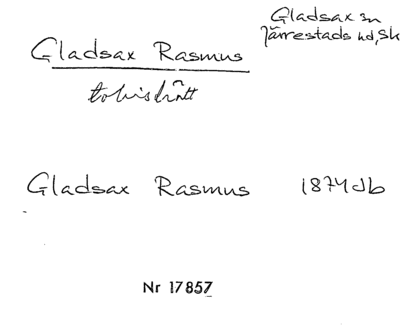 Gladsax sn
Järrestads hd, Sk
Gladsax Rasmus
Gladsax Rasmus 1874 db
Nr 17857